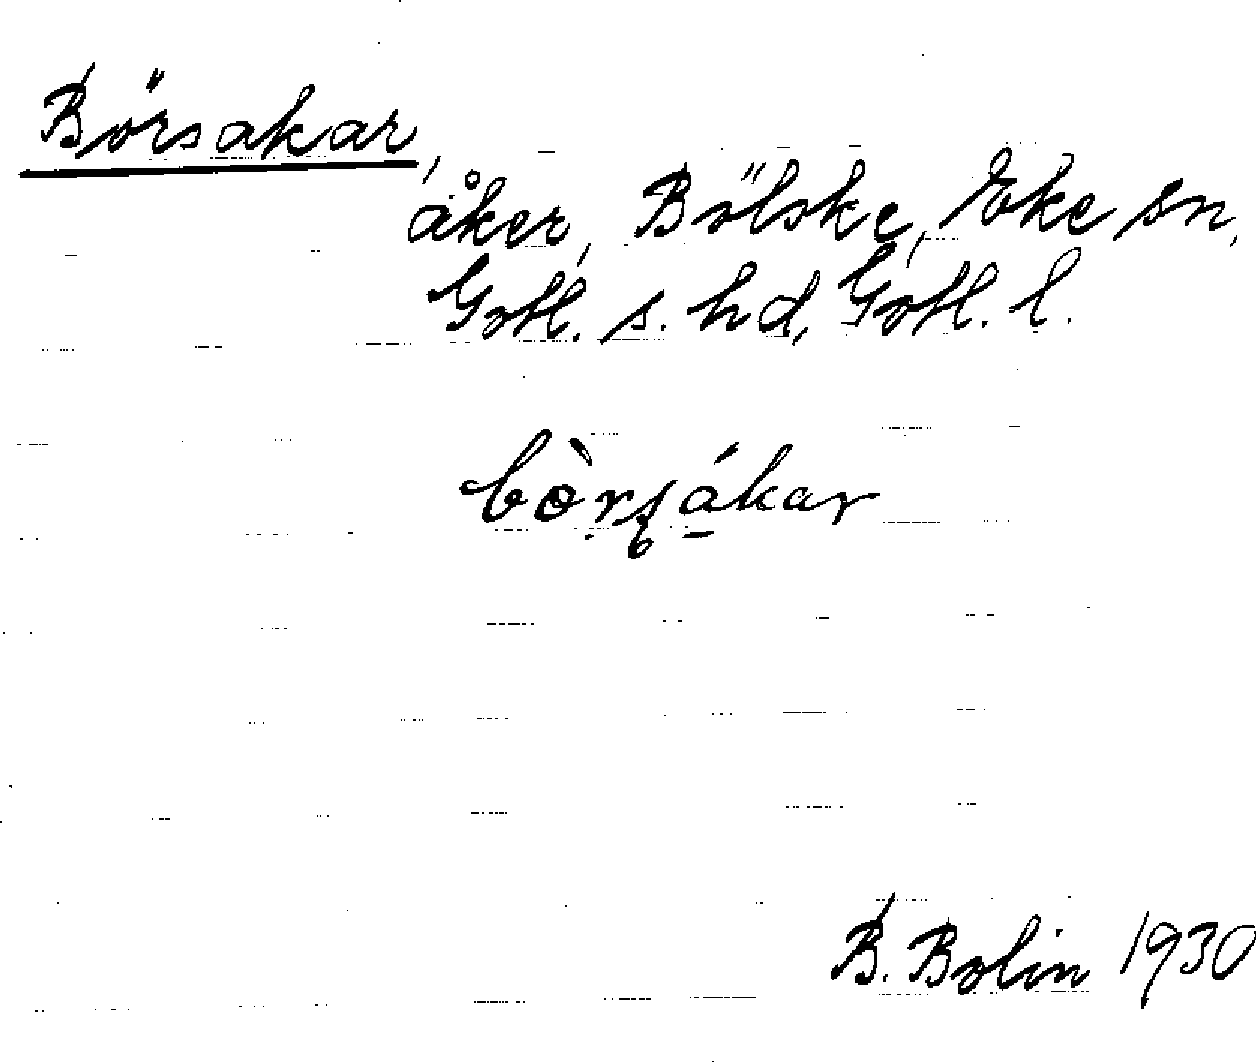 Börsakar,
åker, Bölske, Eke sn,
Gotl. s. hd, Gotl. l.
bòrsákar
B. Bolin 1930